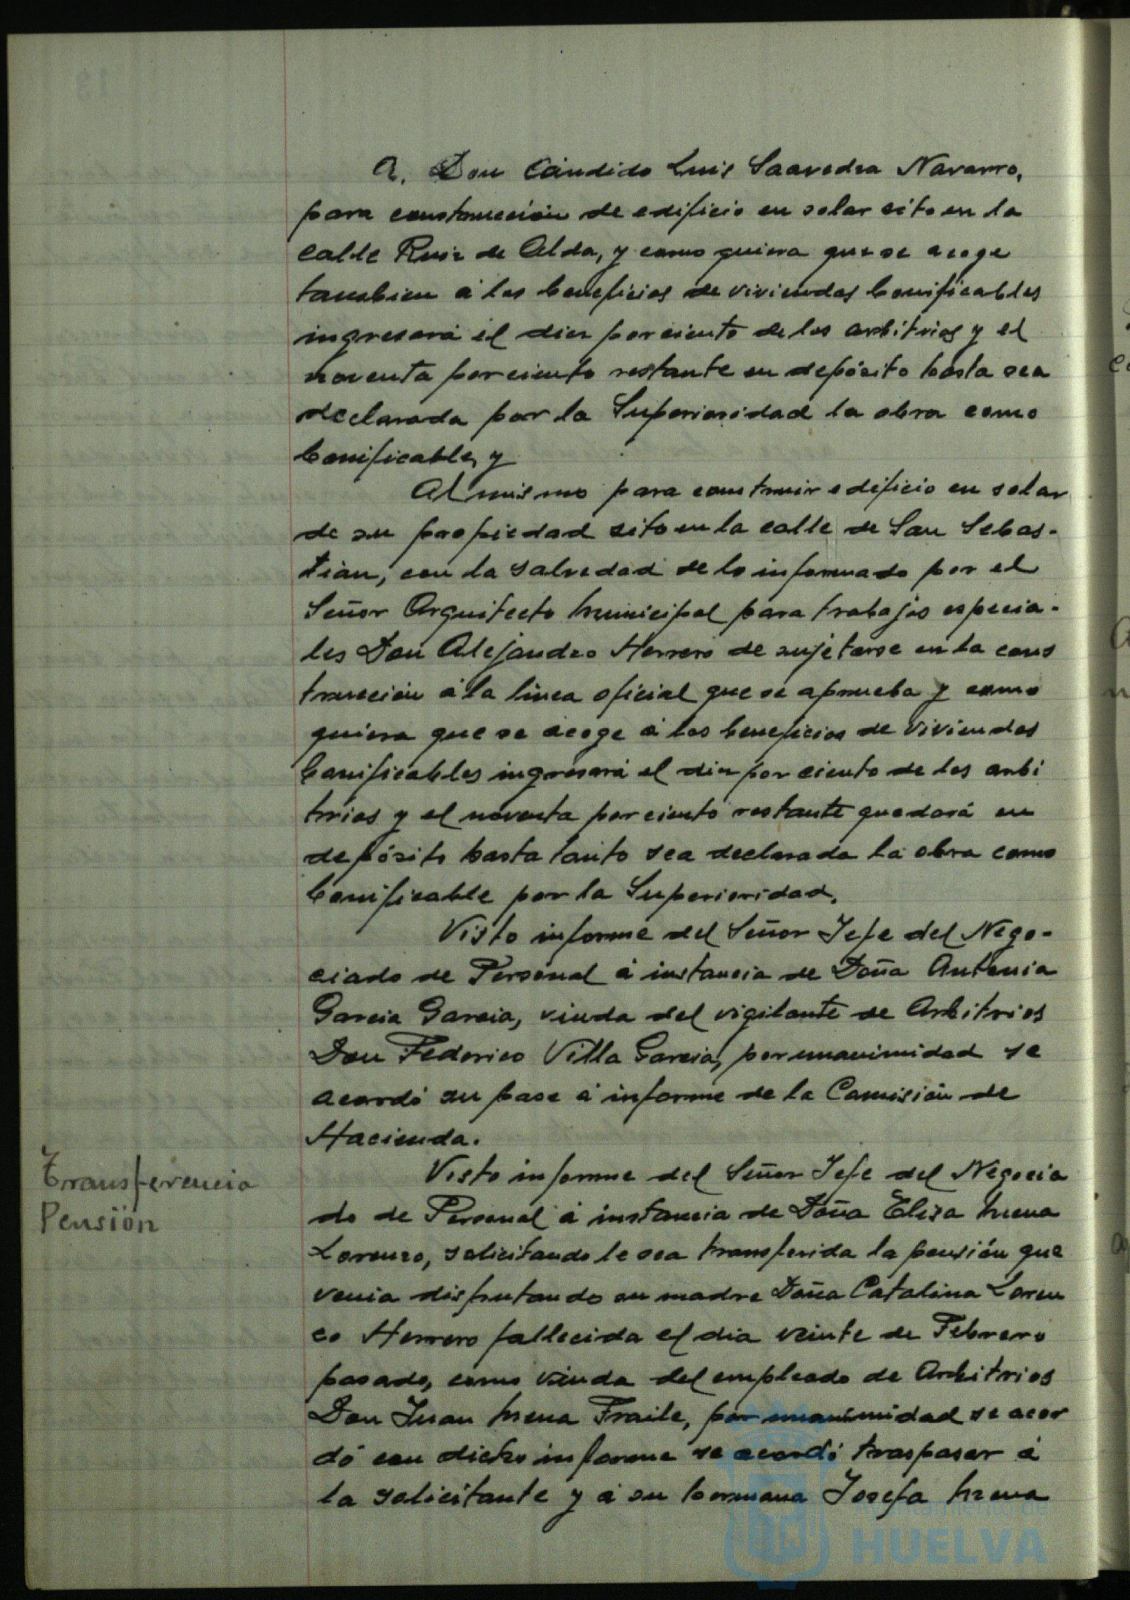 A. Don Cándido Luis Saavedra Navarro,
para construcción de edificio en solar sito en la
calle Ruiz de Alda, y como quiera que se acoge
tambien á los beneficios de viviendas bonificables
ingresará el diez por ciento de los arbitrios y el
noventa por ciento restante en depósito hasta sea
declarada por la Superioridad la obra como
bonificable, y
Al mismo para construir edificio en solar
de su propiedad sito en la calle de San Sebas-
tian, con la salvedad de lo informado por el
Señor Arquitecto Municipal para trabajos especia-
les Don Alejandro Herrero de sujetarse en la cons
trucción á la linea oficial que se aprueba y como
quiera que se acoge á los beneficios de viviendas
bonificables ingresará el diez por ciento de los arbi
trios y el noventa por ciento restante quedará en
depósito hasta tanto sea declarada la obra como
bonificable por la Superioridad.
Visto informe del Señor Jefe del Nego-
ciado de Personal á instancia de Doña Antonia
Garcia Garcia, viuda del vigilante de Arbitrios
Don Federico Villa Garcia, por unanimidad se
acordó su pase á informe de la Comisión de
Hacienda.
Transferencia
Pensión
Visto informe del Señor Jefe del Negocia
do de Personal á instancia de Doña Elisa Mena
Lorenzo, solicitando le sea transferida la pensión que
venia disfrutando su madre Doña Catalina Loren
zo Herrero fallecida el dia veinte de Febrero
pasado, como viuda del empleado de Arbitrios
Don Juan Mena Fraile, por unanimidad se acor
dó con dicho informe se acordó traspasar á
la solicitante y á su hermana Josefa Mena
HUELVA